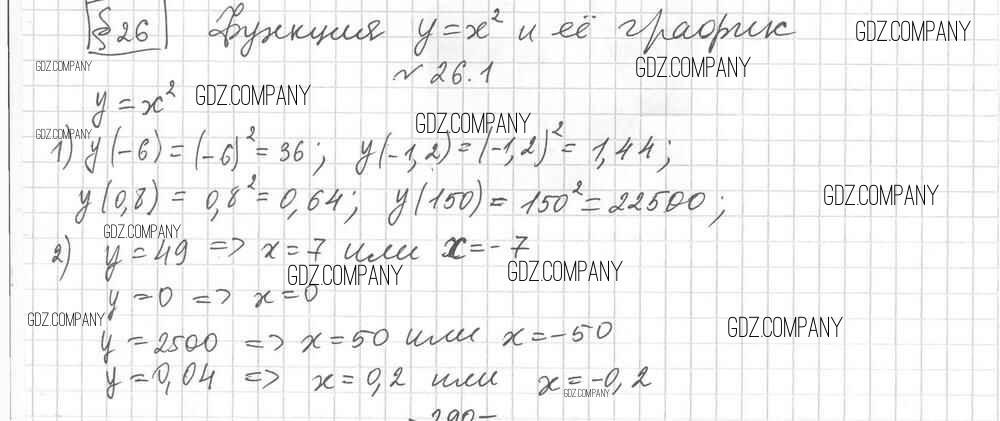 § 26 Функция y=x² и её график GDZ.COMPANY
GDZ.COMPANY № 26.1 GDZ.COMPANY
y=x² GDZ.COMPANY
GDZ.COMPANY GDZ.COMPANY
1) y(-6)=(-6)²=36; y(-1,2)=(-1,2)²=1,44;
y(0,8)=0,8²=0,64; y(150)=150²=22500; GDZ.COMPANY
GDZ.COMPANY
2) y=49 => x=7 или x=-7
GDZ.COMPANY GDZ.COMPANY
y=0 => x=0
GDZ.COMPANY GDZ.COMPANY
y=2500 => x=50 или x=-50
y=0,04 => x=0,2 или x=-0,2
GDZ.COMPANY